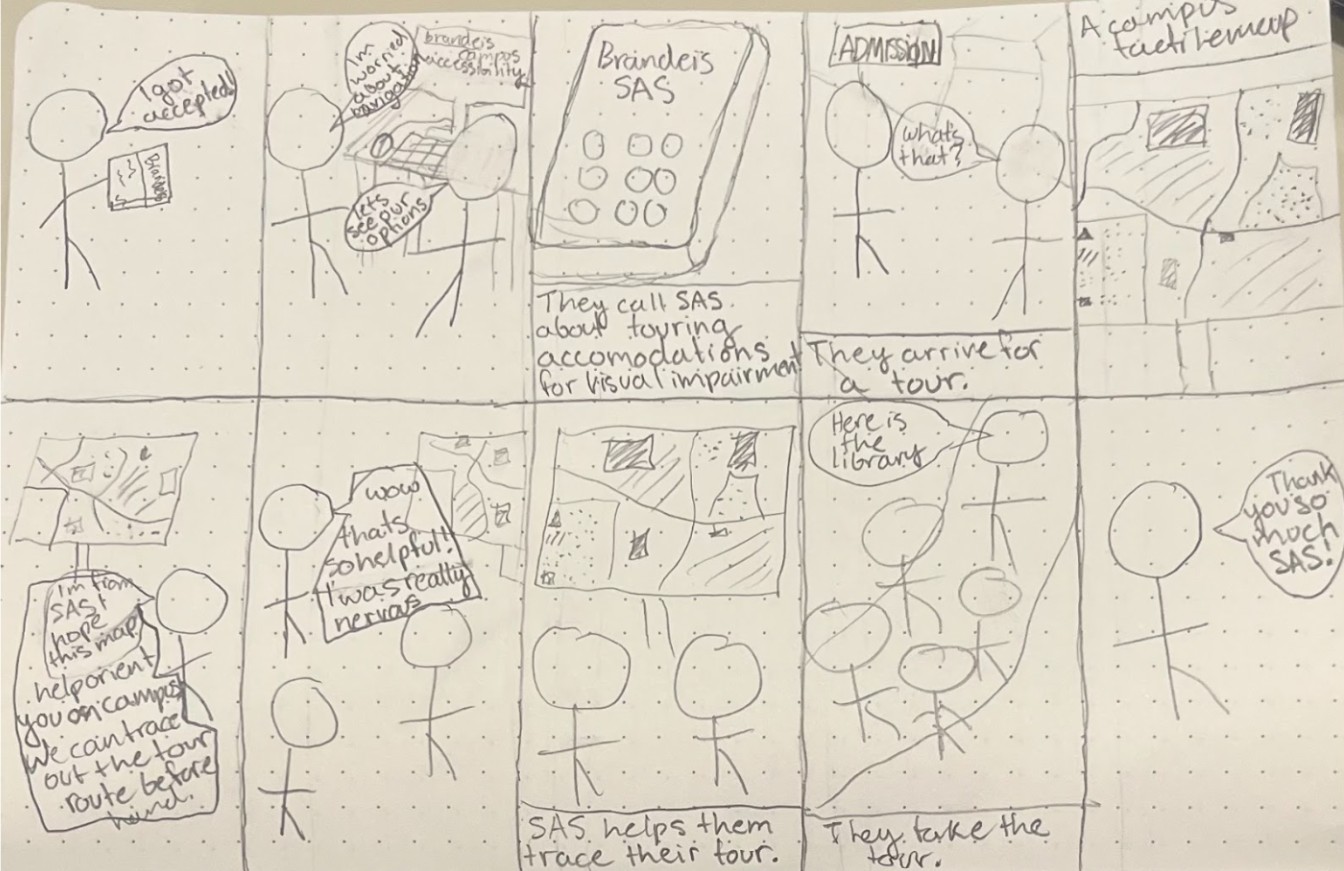 I got
accepted!
Brandeis
I'm
worried
about
navigation
brandeis
campus
accessiality
lets
see our
options
Brandeis
SAS
They call SAS
about touring
accomodations
for visual impairment
ADMISSION
whats
that?
They arrive for
a tour.
A campus
tactile map
I'm from
SAS I
hope
this map
help orient
you on campus
We can trace
out the tour
route before
hand.
wow
thats
so helpful!
I was really
nervous
SAS helps them
trace their tour.
Here is
the
library
They take the
tour.
Thank
you so
much
SAS!